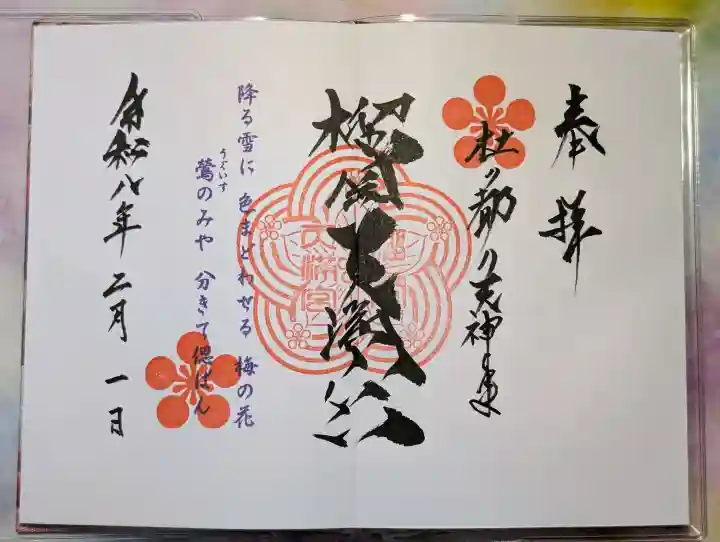 奉拝
杜の都の天神さま
榴岡天満宮
降る雪に 色まどわせる 梅の花
鶯のみや 分きて偲ばん
うぐいす
令和八年 二月 一日